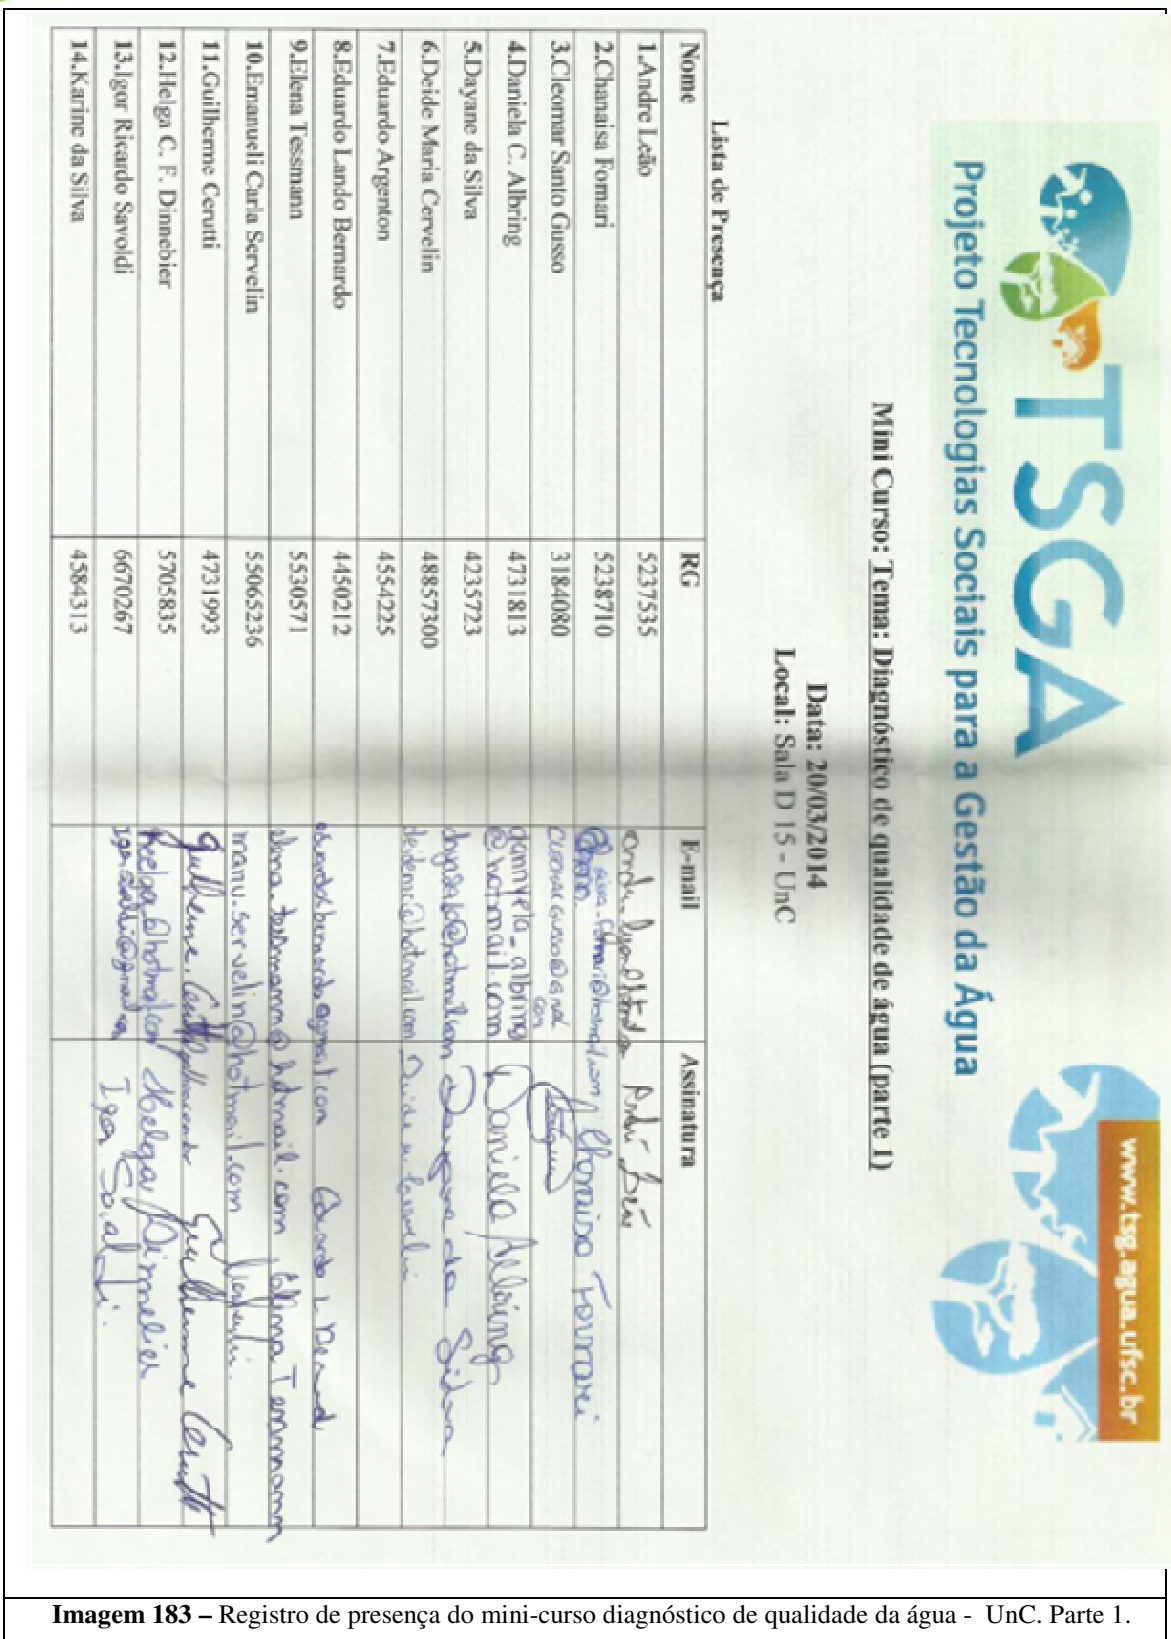 TSGA
Projeto Tecnologias Sociais para a Gestão da Água
www.tsg.agua.ufsc.br
Mini Curso: Tema: Diagnóstico de qualidade de água (parte 1)
Data: 20/03/2014
Local: Sala D 15 - UnC
Lista de Presença
Nome RG E-mail Assinatura
1.Andre Leão 5237535 André Leão
2.Chanaisa Fornari 5238710 Chanaisa Fornari
3.Cleomar Santo Gusso 3184080
4.Daniela C. Albring 4731813 dannyela_albring@hotmail.com Daniela Albring
5.Dayane da Silva 4235723 Dayane da Silva
6.Deide Maria Cervelin 48857300 deidemc@hotmail.com Deide M. Cervelin
7.Eduardo Argenton 4554225
8.Eduardo Lando Bernardo 4450212 Eduardo L Bernardo
9.Elena Tessmann 5530571 elena_tessmann@hotmail.com Elena Tessmann
10.Emanueli Carla Servelin 55065236 manu.servelin@hotmail.com
11.Guilherme Cerutti 4731993 Guilherme Cerutti
12.Helga C. F. Dinnebier 5705835 Helga Dinnebier
13.Igor Ricardo Savoldi 6670267 Igor Savoldi
14.Karine da Silva 4584313
Imagem 183 – Registro de presença do mini-curso diagnóstico de qualidade da água - UnC. Parte 1.